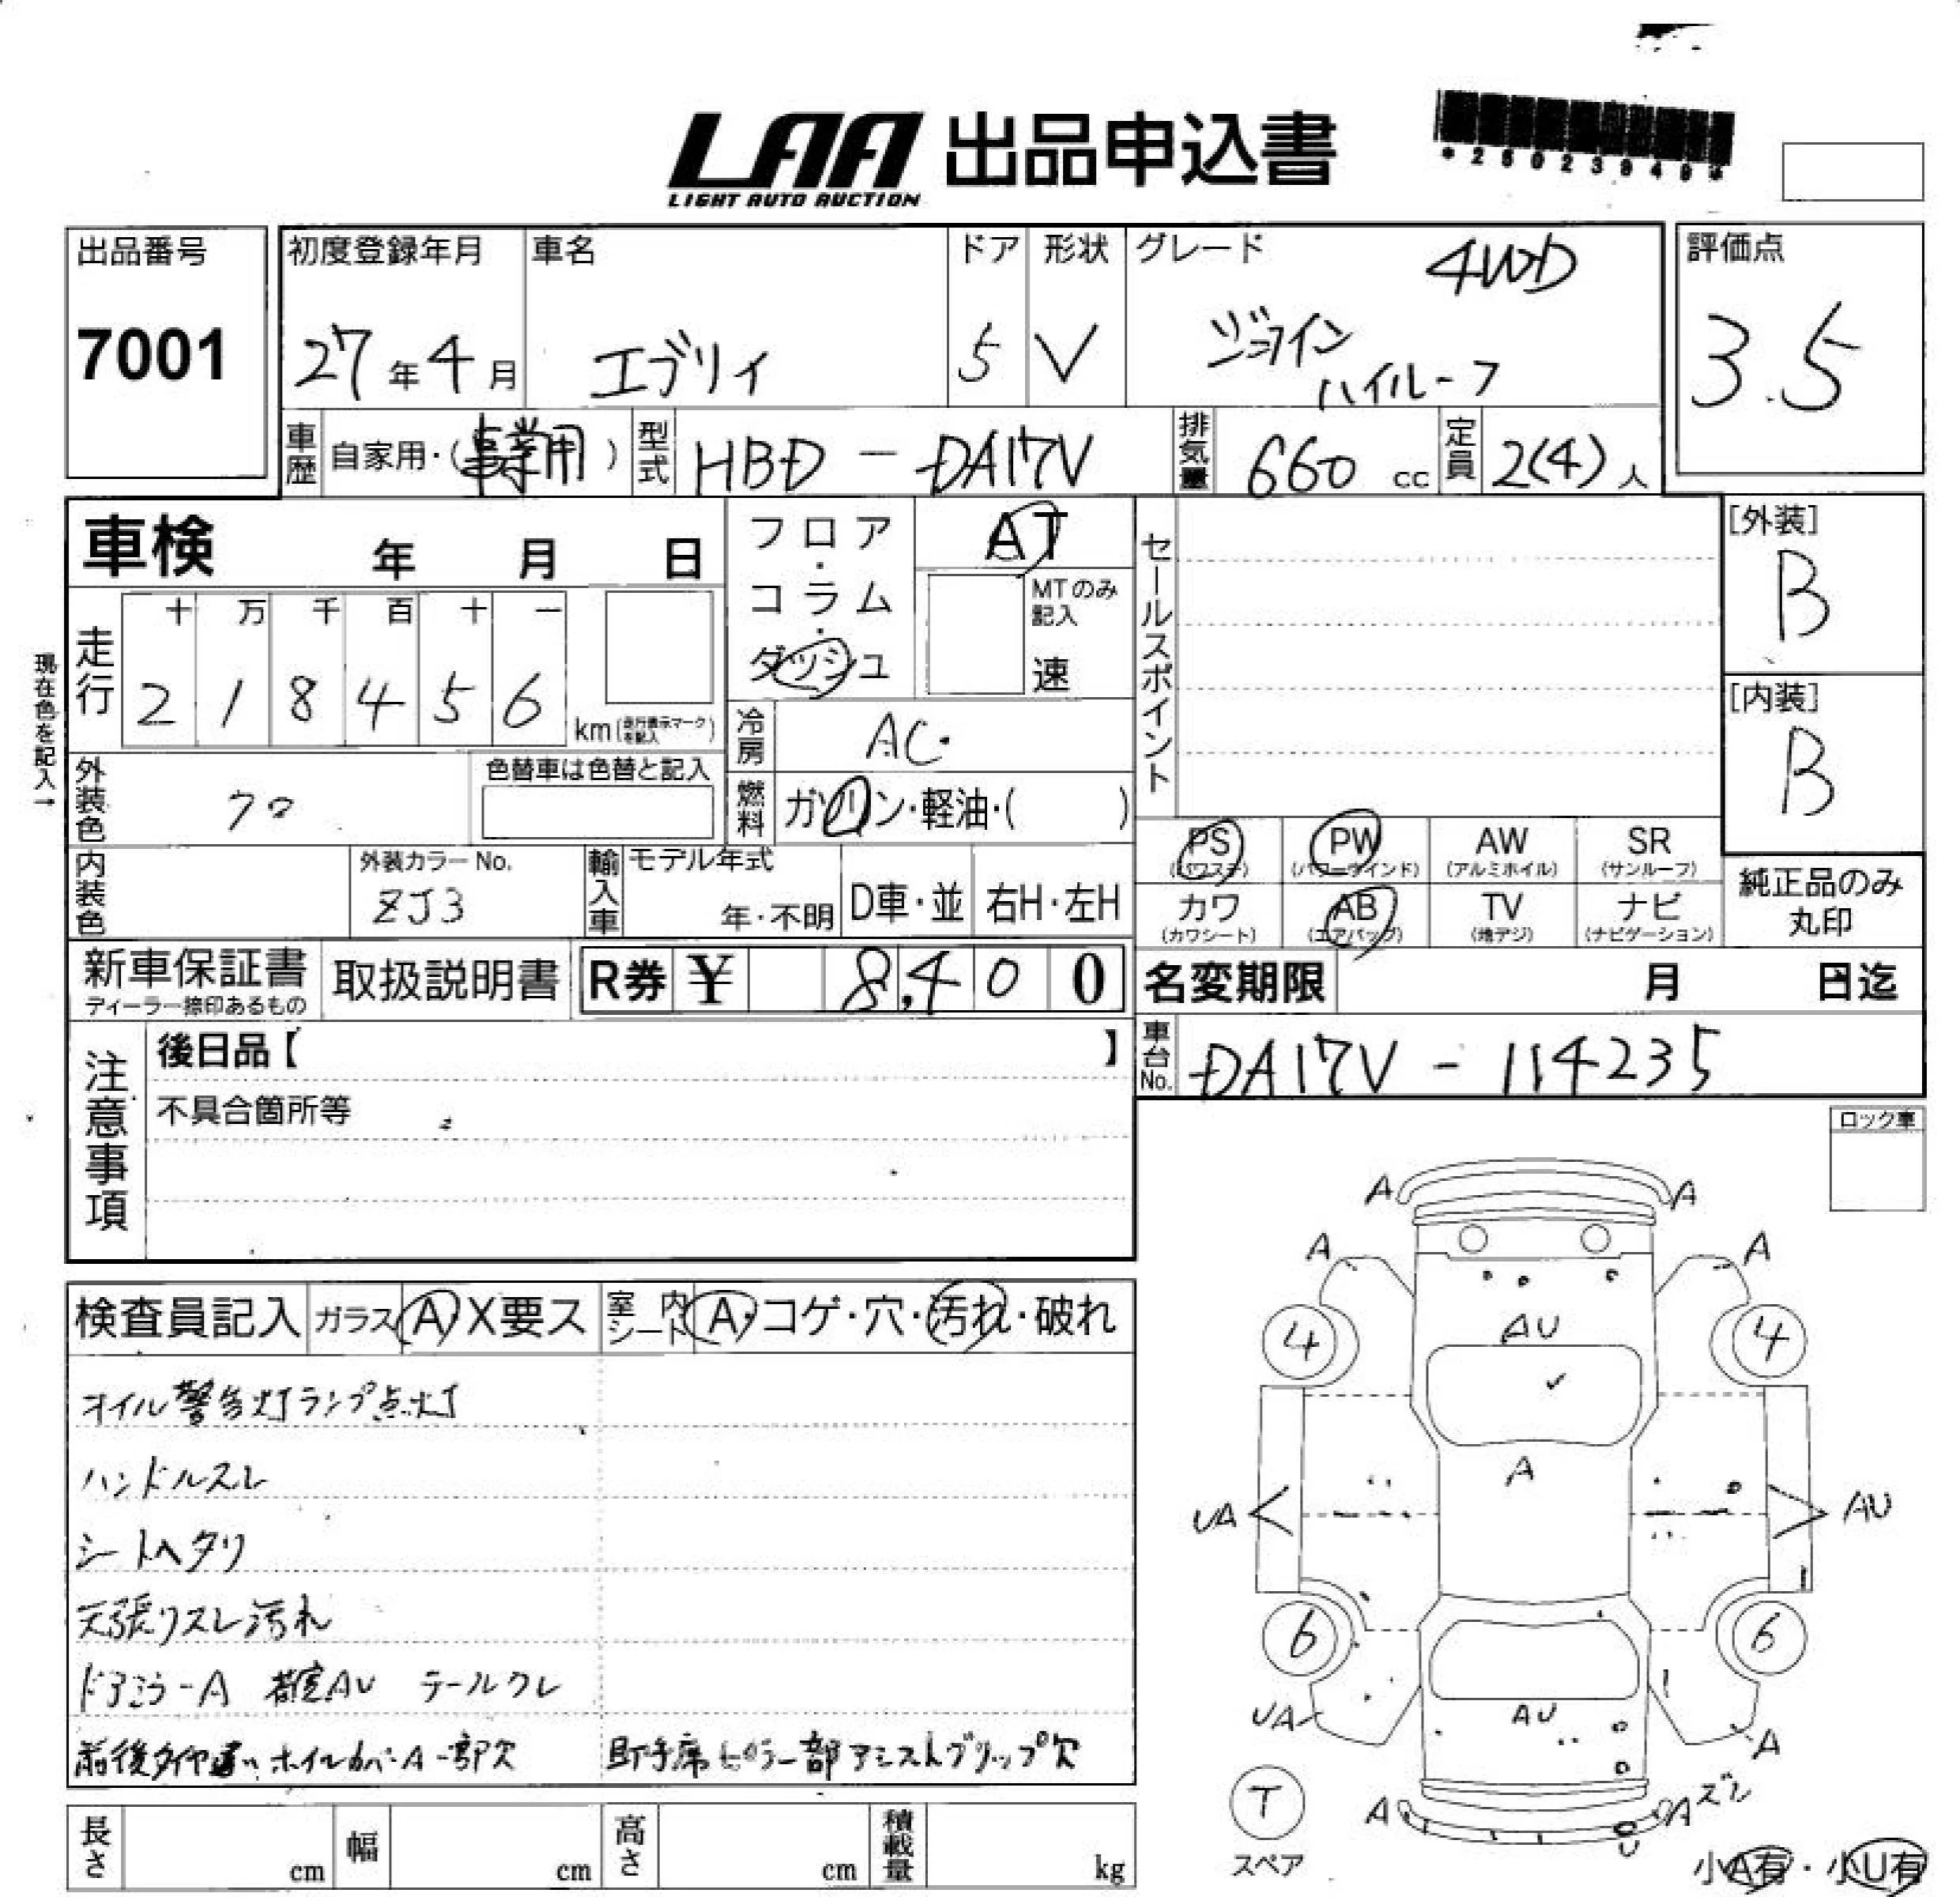 LAA 出品申込書
LIGHT AUTO AUCTION
*26023949*
出品番号 初度登録年月 車名 ドア 形状 グレード 4WD 評価点
7001 27年4月 エブリイ 5 V ジョイン ハイルーフ 3.5
車歴 自家用・(事業用) 型式 HBD-DA17V 排気量 660 cc 定員 2(4)人
車検 年 月 日
フロア・コラム・ダッシュ
AT
MTのみ記入
速
セールスポイント
[外装]
B
[内装]
B
現在色を記入→
走行 十 万 千 百 十 一
2 1 8 4 5 6 km(走行表示マークを記入)
冷房 AC
外装色 クロ 色替車は色替と記入
燃料 ガソリン・軽油・( )
PS (パワステ) PW (パワーウインド) AW (アルミホイル) SR (サンルーフ)
カワ (カワシート) AB (エアバッグ) TV (地デジ) ナビ (ナビゲーション)
純正品のみ丸印
内装色 外装カラーNo. ZJ3 輸入車 モデル年式 年・不明 D車・並 右H・左H
新車保証書 ディーラー捺印あるもの 取扱説明書 R券 ¥ 8,400
名変期限 月 日迄
車台No. DA17V-114235
注意事項
後日品【 】
不具合箇所等
ロック車
検査員記入 ガラス A X要ス 室内シート A・コゲ・穴・汚れ・破れ
オイル警告灯ランプ点灯
ハンドルスレ
シートヘタリ
天張リスレ汚れ
ドアミラーA 荷室AU テールワレ
前後タイヤ違い ホイルカバーA一部欠 助手席ピラー部アシストグリップ欠
A A
A A
4 AU 4
A
UA AU
6 6
UA AU A
T A A ズレ
スペア
小A有・小U有
長さ cm 幅 cm 高さ cm 積載量 kg